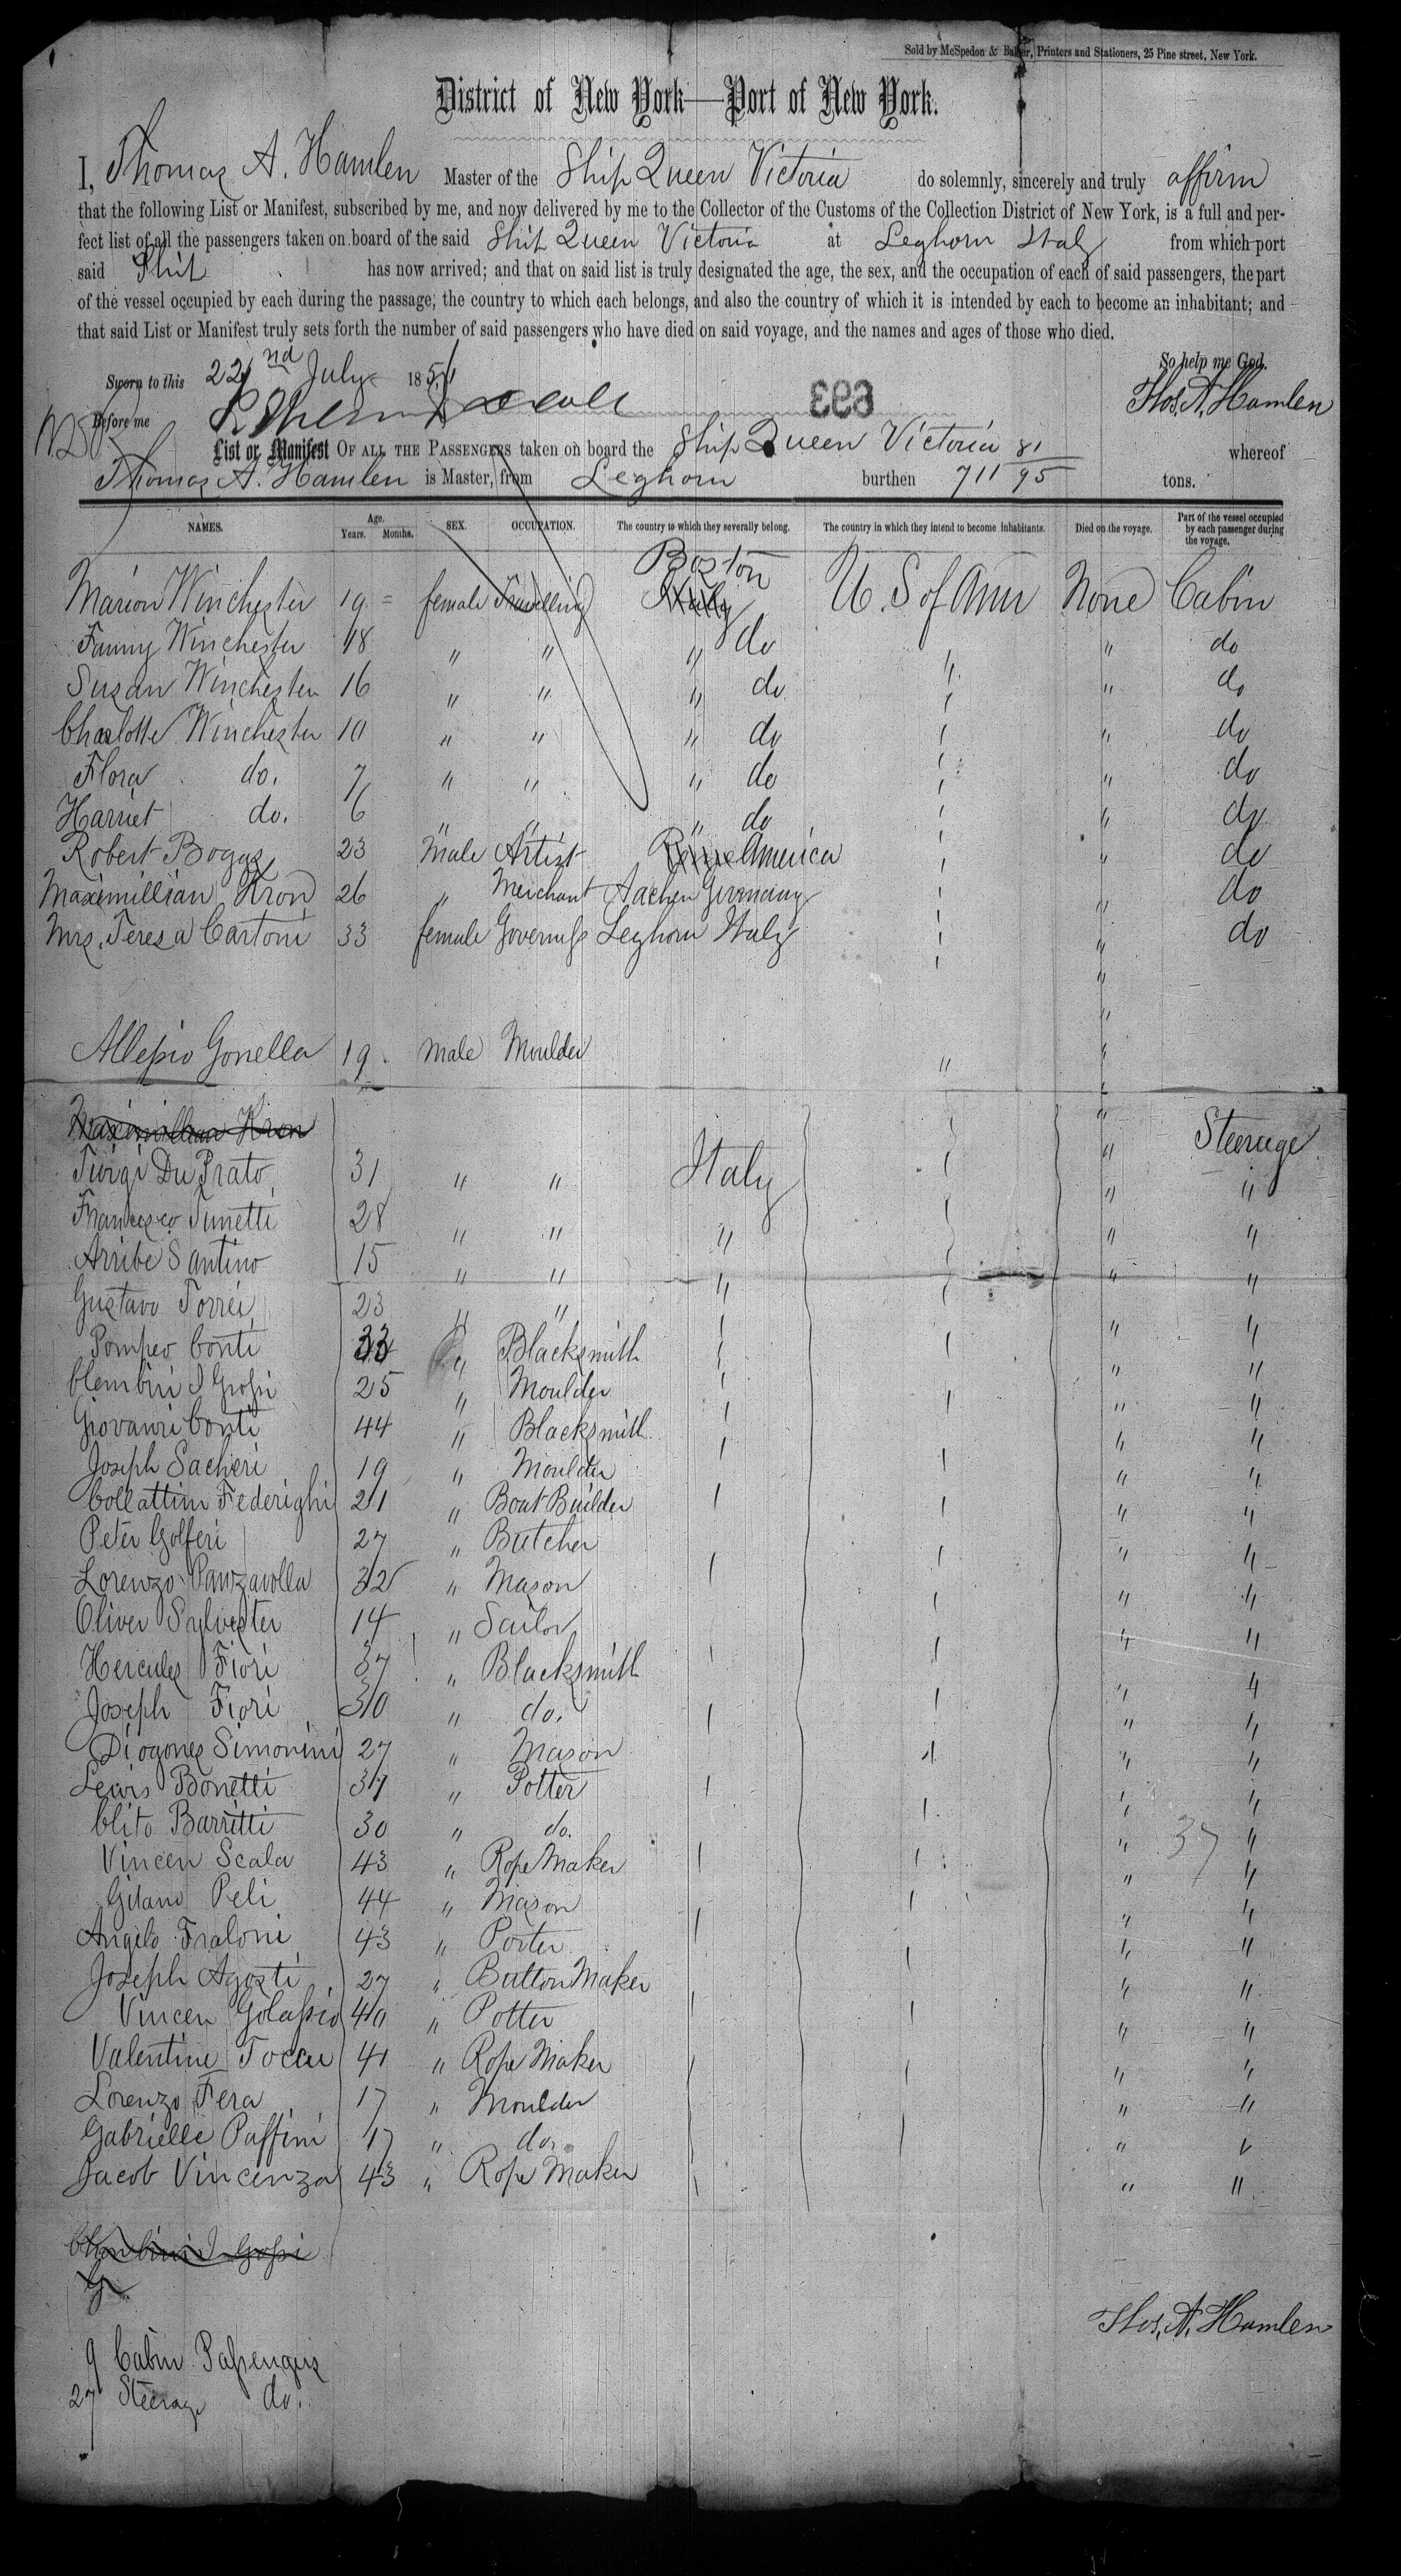 Sold by McSpedon & Baker, Printers and Stationers, 25 Pine street, New York.
District of New York—Port of New York.
I, Thomas A. Hamlen Master of the Ship Queen Victoria do solemnly, sincerely and truly affirm
that the following List or Manifest, subscribed by me, and now delivered by me to the Collector of the Customs of the Collection District of New York, is a full and per-
fect list of all the passengers taken on board of the said Ship Queen Victoria at Leghorn Italy from which port
said Ship has now arrived; and that on said list is truly designated the age, the sex, and the occupation of each of said passengers, the part
of the vessel occupied by each during the passage; the country to which each belongs, and also the country of which it is intended by each to become an inhabitant; and
that said List or Manifest truly sets forth the number of said passengers who have died on said voyage, and the names and ages of those who died.
So help me God.
Sworn to this 22nd July 1851
Thos. A. Hamlen
Before me
693
List or Manifest OF ALL THE PASSENGERS taken on board the Ship Queen Victoria whereof
Thomas A. Hamlen is Master, from Leghorn burthen 711 81/95 tons.
NAMES. Age. Years. Months. SEX. OCCUPATION. The country to which they severally belong. The country in which they intend to become inhabitants. Died on the voyage. Part of the vessel occupied by each passenger during the voyage.
Boston
Marion Winchester 19 = female Travelling Italy U. S of Amr None Cabin
Fanny Winchester 18 " " " do " " do
Susan Winchester 16 " " " do " " do
Charlotte Winchester 10 " " " do " " do
Flora do. 7 " " " do " " do
Harriet do. 6 " " " do " " do
Robert Boggs 23 Male Artist America " " do
Maximillian Kron 26 " Merchant Aachen Germany " " do
Mrs. Teresa Cartoni 33 female Governess Leghorn Italy " " do
Allessio Gonella 19 Male Moulder " "
Maximillian Kron " Steerage
Luigi Du Prato 31 " " Italy " " "
Francesco Tunetti 28 " " " " " "
Arribe Santino 15 " " " " " "
Gustavo Torrei 23 " " " " " "
Pompeo Conti 33 " Blacksmith " " " "
Clembini I Grossi 25 " Moulder " " " "
Giovanni Conti 44 " Blacksmith " " " "
Joseph Sacheri 19 " Moulder " " " "
Collattim Federighi 21 " Boat Builder " " " "
Peter Golferi 27 " Butcher " " "
Lorenzo Panzavolla 32 " Mason " " " "
Oliver Sylvester 14 " Sailor " " "
Hercules Fiori 37 " Blacksmith " " " "
Joseph Fiori 30 " do. " " " "
Diogones Simonini 27 " Mason " " "
Lewis Bonetti 37 " Potter " " "
Clito Barritti 30 " do. " " "
37
Vincen Scala 43 " Rope Maker " " " "
Gitano Peli 44 " Mason " " "
Angelo Fraloni 43 " Porter " " " "
Joseph Agosti 27 " Button Maker " "
Vincen Golassio 40 " Potter " " " "
Valentine Toccu 41 " Rope Maker " " " "
Lorenzo Fera 17 " Moulder " "
Gabrielle Paffini 17 " do. " " " "
Jacob Vincenza 43 " Rope Maker " " "
Clembini I Gossi
G
Thos. A. Hamlen
9 Cabin Passengers
27 Steerage do.